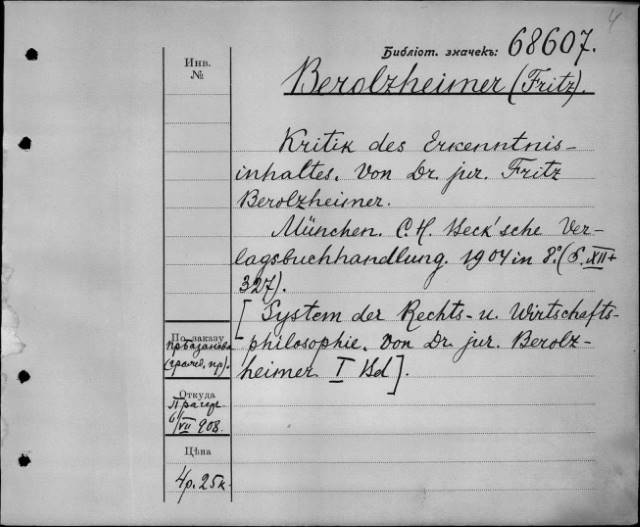 4
Библіот. значекъ: 68607.
Инв.
№
Berolzheimer (Fritz).
Kritik des Erkenntnis-
inhaltes. Von Dr. jur. Fritz
Berolzheimer.
München. C. H. Beck'sche Ver-
lagsbuchhandlung. 1904 in 8º. (S. XII+
327).
[System der Rechts- u. Wirtschafts-
philosophie. Von Dr. jur. Berolz-
heimer I Bd].
По заказу
Откуда
Прагер
6/VII 908.
Цѣна
4р. 25к.